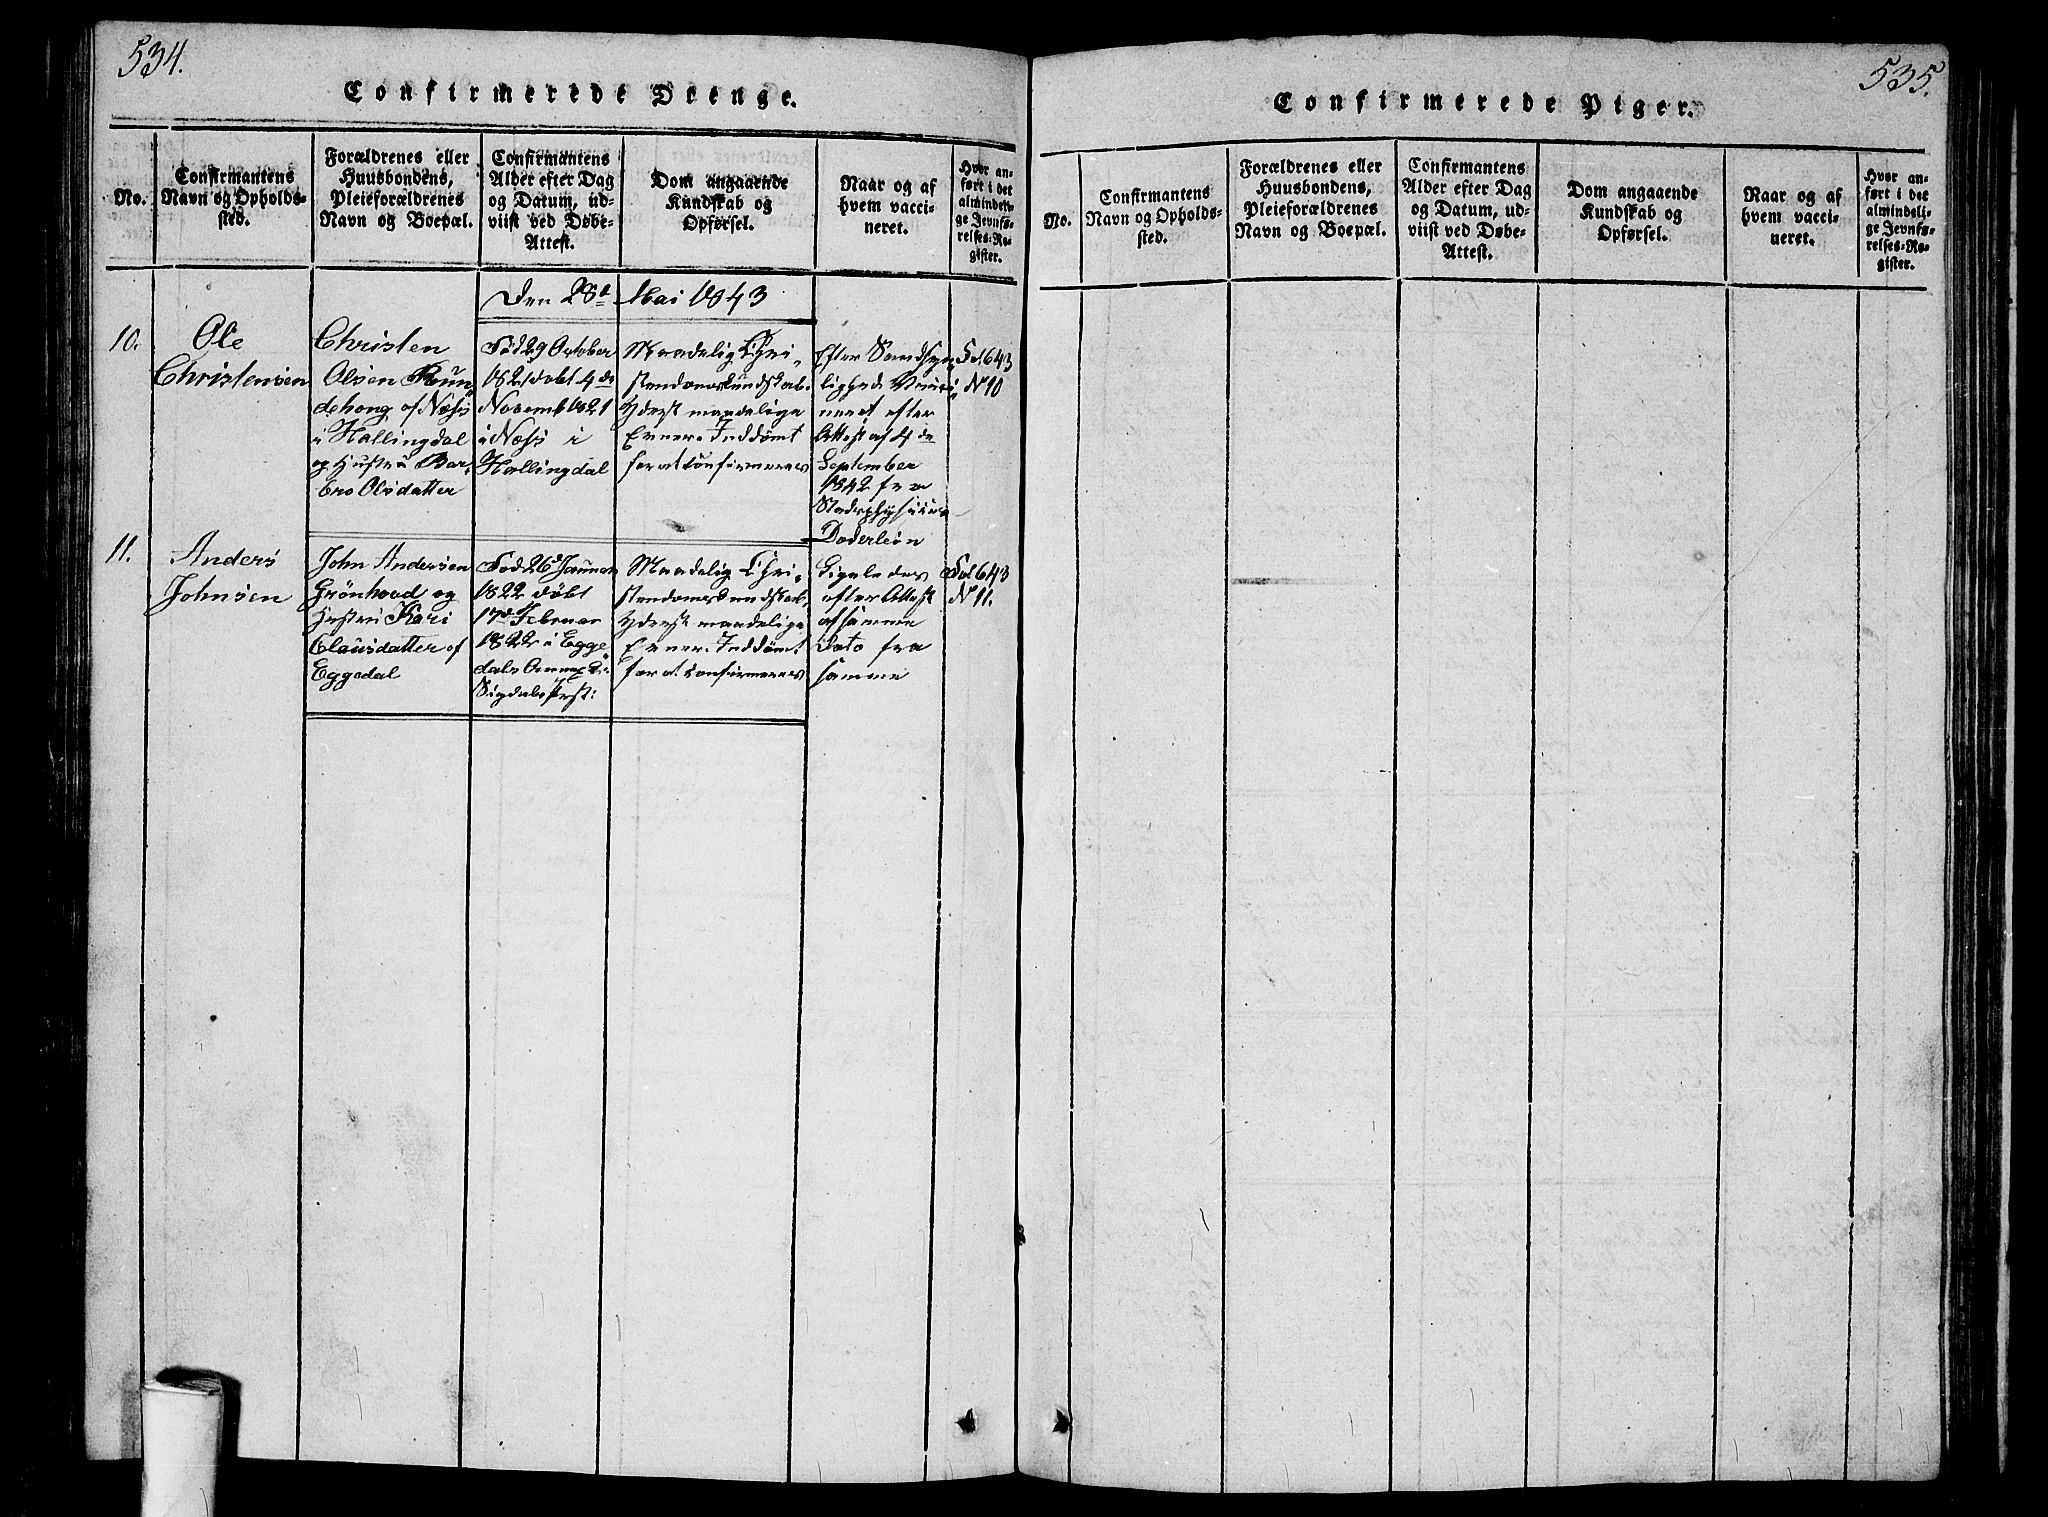 534.
Confirmerede Drenge.
No.
Confirmantens
Navn og Opholds-
sted.
Forældrenes eller
Huusbondens,
Pleieforældrenes
Navn og Boepæl.
Confirmantens
Alder efter Dag
og Datum, ud-
viist ved Døbe-
Attest.
Dom angaaende
Kundskab og
Opførsel.
Naar og af
hvem vacci-
neret.
Hvor an-
ført i det
almindeli-
ge Jevnfø-
relses-Re-
gister.
Den 28de Mai 1843
10.
Ole
Christensen
Christen
Olsen Run-
dehong af Næss
i Hallingdal
og Hustru Bar-
bro Olsdatter
Fød 29 October
1821 døbt 4de
Novemb 1821
i Næss i
Hallingdal
Maadelig Chri-
stendomskundskab.
Yderst maadelige
Evner. Inddømt
for at confirmeres
Efter Sandsyn-
lighed Vacci-
neret efter
Attest af 4de
September
1842 fra
Stadsphysicus
Døderlein
Fol 643
N 10
11.
Anders
Johnsen
John Andersen
Grönhovd og
Hustru Kari
Clausdatter af
Eggedal
Fød 26 Januar
1822 døbt
17de Februar
1822 i Egge-
dals Annex i
Sigdals Prst:
Maadelig Chri-
stendomskundskab,
Yderst maadelige
Evner. Inddømt
for at confirmeres
Ligeledes
efter Attest
af samme
Dato fra
samme
Fol 643
N 11.
535.
Confirmerede Piger.
No.
Confirmantens
Navn og Opholds-
sted.
Forældrenes eller
Huusbondens,
Pleieforældrenes
Navn og Boepæl.
Confirmantens
Alder efter Dag
og Datum, ud-
viist ved Døbe-
Attest.
Dom angaaende
Kundskab og
Opførsel.
Naar og af
hvem vacci-
neret.
Hvor an-
ført i det
almindeli-
ge Jevnfø-
relses-Re-
gister.